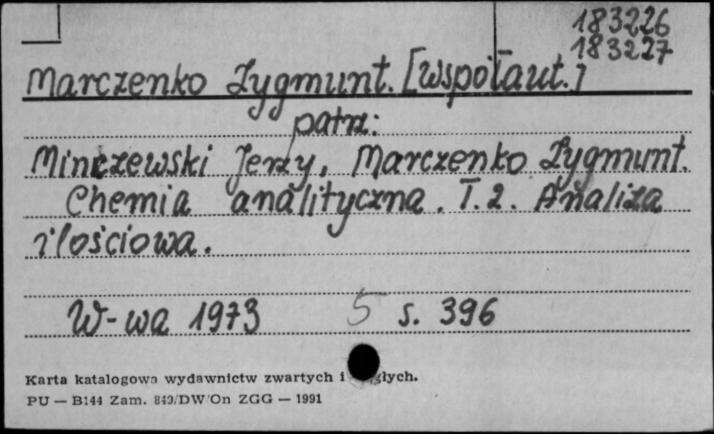 183226
183227
Marczenko Zygmunt. [współaut.]
patrz:
Minczewski Jerzy, Marczenko Zygmunt.
Chemia analityczna. T. 2. Analiza
ilościowa.
W-wa 1973 5 s. 396
Karta katalogowa wydawnictw zwartych i
PU — B144 Zam. 849/DW/On ZGG — 1991